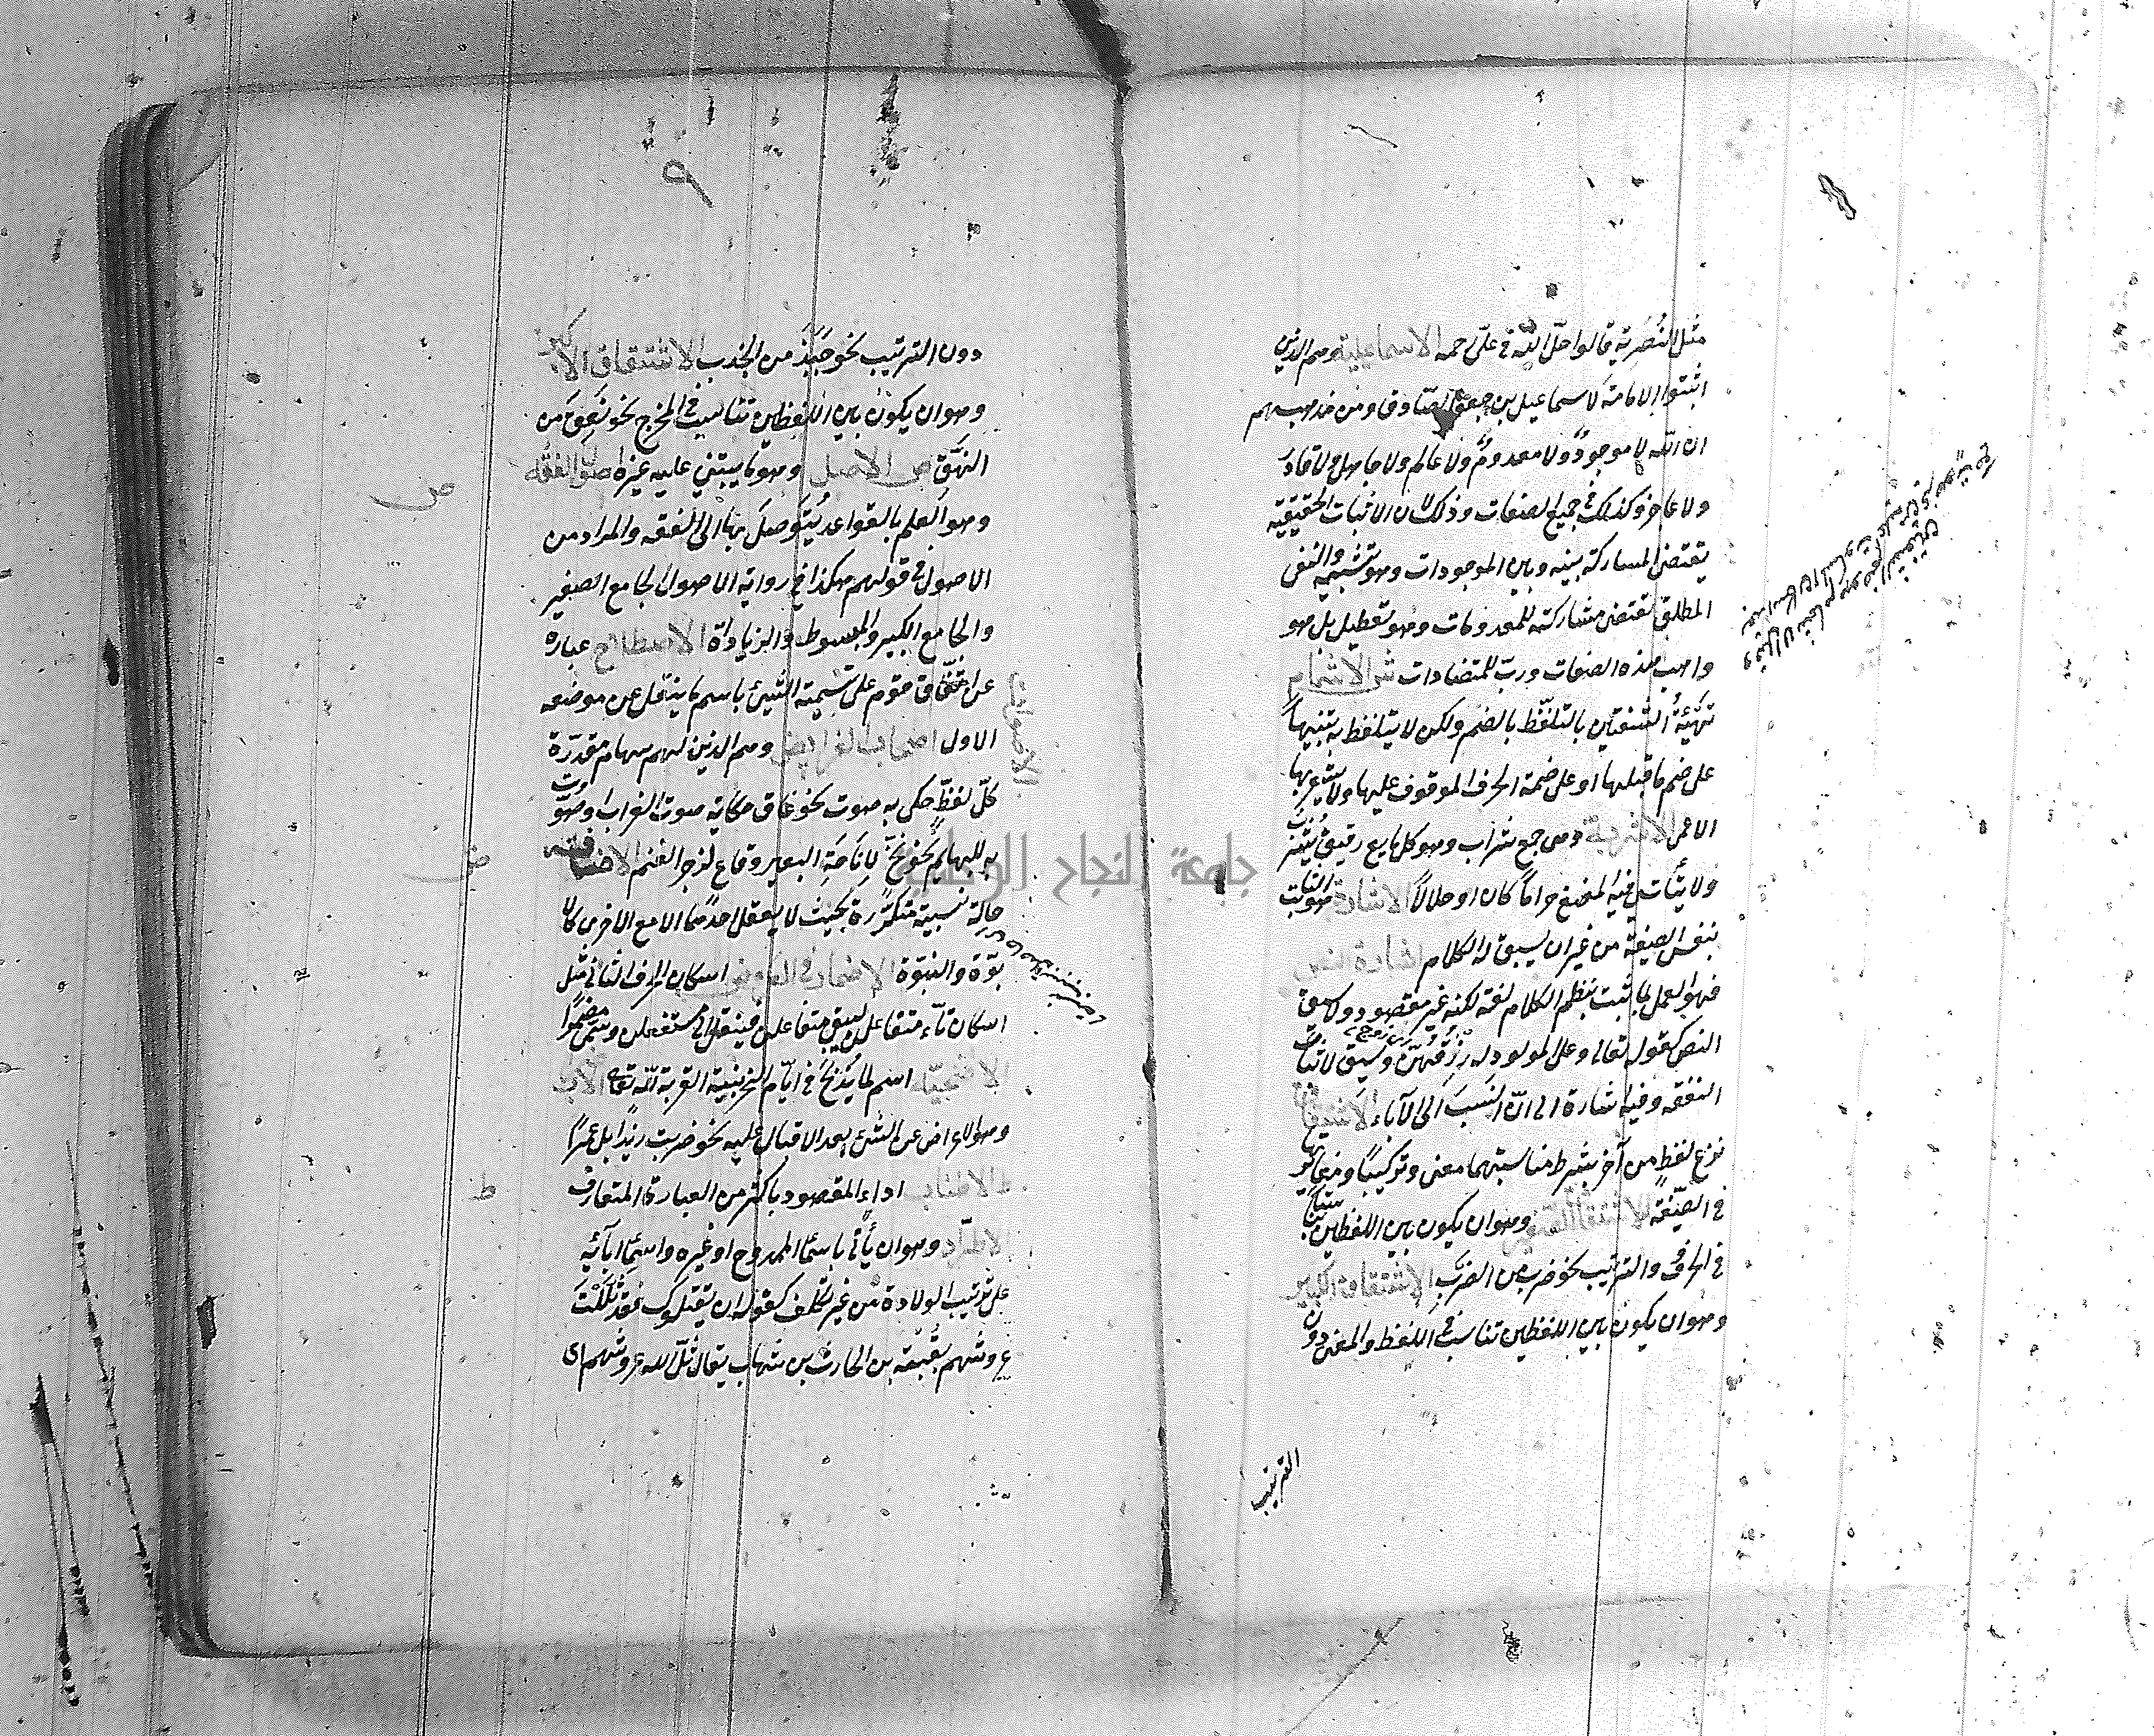 مثل النُصَرية قالوا حلّ اللّه في علي رحمه الاسماعيلية وهم الذين
اثبتوا الامامة لاسماعيل بن جعفر الصادق ومن مذهبهم
ان اللّه لا موجودٌ ولا معدومٌ ولا عالم ولا جاهل ولا قادر
ولا عاجز وكذلك في جميع الصفات وذلك لان الاثبات الحقيقية
يقتضي المشاركة بينه وبين الموجودات وهو تشبيه والنفي
المطلق يقتضي مشاركته للمعدومات وهو تعطيل بل هو
واهب هذه الصفات وربّ للمتضادات ش الاشمام
تهيّئة الشفتين بالتلفّظ بالضم ولكن لا يتلفظ به تنبيهاً
على ضم ما قبلها او على ضمة الحرف الموقوف عليها ولا يشعر بها
الاعمى الاشربة وهي جمع شراب وهو كل مايع رقيق يُشرب
ولا يتأت فيه المضغ حراماً كان او حلالاً الاشارة هو الثابت
بنفس الصيغة من غير ان يسبق له الكلام اشارة النص
فهو العمل بما ثبت بنظم الكلام لغة لكنه غير مقصود ولا سيق
النص كقوله تعالى وعلى المولود له رزقهنّ وسيق لاثبات
النفقه وفيه اشارة الى انّ النسَبَ الى الآباء الاشتقاق
نزع لفظٍ من آخر بشرط مناسبتهما معنى وتركيبًا ومغايرتهما
في الصيغة الاشتقاق الصغير وهو ان يكون بين اللفظين تناسب
في الحرف والترتيب نحو ضرب من الضرب الاشتقاق الكبير
وهو ان يكون بين اللفظين تناسب في اللفظ والمعنى دون
الترتيب
٩
دون الترتيب نحو جَبَذَ من الجذب الاشتقاق الاكبر
وهو ان يكون بين اللفظين تناسب في المخرج نحو نَعِقَ من
النهَق ص الاصل وهو ما يبتني عليه غيره اصول الفقه
ص
وهو العلم بالقواعد يُتَوصل بها الى الفقه والمراد من
الاصول في قولهم هكذا في رواية الاصول الجامع الصغير
والجامع الكبير والمبسوط والزيادات الاصطلاح عبارة
عن اتفاق قوم على تسمية الشيئ باسم ما ينقل عن موضعه
الاول اصحاب الفرايض وهم الذين لهم سهام مقدّرة
الاصوات
كلّ لفظٍ حكي به صوت نحو غاق حكاية صوت الغراب او صوّت
به للبهايم نحو نخّ لاناخة البعير وقاع لزجر الغنم الاضافة
ض
حالة نسبية متكرّرة بحيث لا يعقل احدهما الا مع الاخرى كالا
بوّة والنبوّة الاضمار في العروض اسكان الحرف الثاني مثل
اسكان تآء متفاعلن ليبقى متفاعلن فينقل الى مستفعلن ويسمى مضمرًا
الاضحية اسم لما يُذبَح في ايّام النحر بنية القربة للّه تعالى الاضراب
وهو الاعراض عن الشئ بعد الاقبال عليه نحو ضربت زيدًا بل عمرًا
ط الاطناب اداء المقصود باكثر من العبارة المتعارف
ط
الاطّراد وهو ان يأتي باسمآ الممدوح او غيره واسمآ آبائه
على ترتيب الولادة من غير تكلف كقوله ان يقتلوك فقد ثللت
عروشهم بعُتيبة بن الحارث بن شهاب يقال ثلّ اللّه عروشهم اى
جامعة النجاح الوطنية